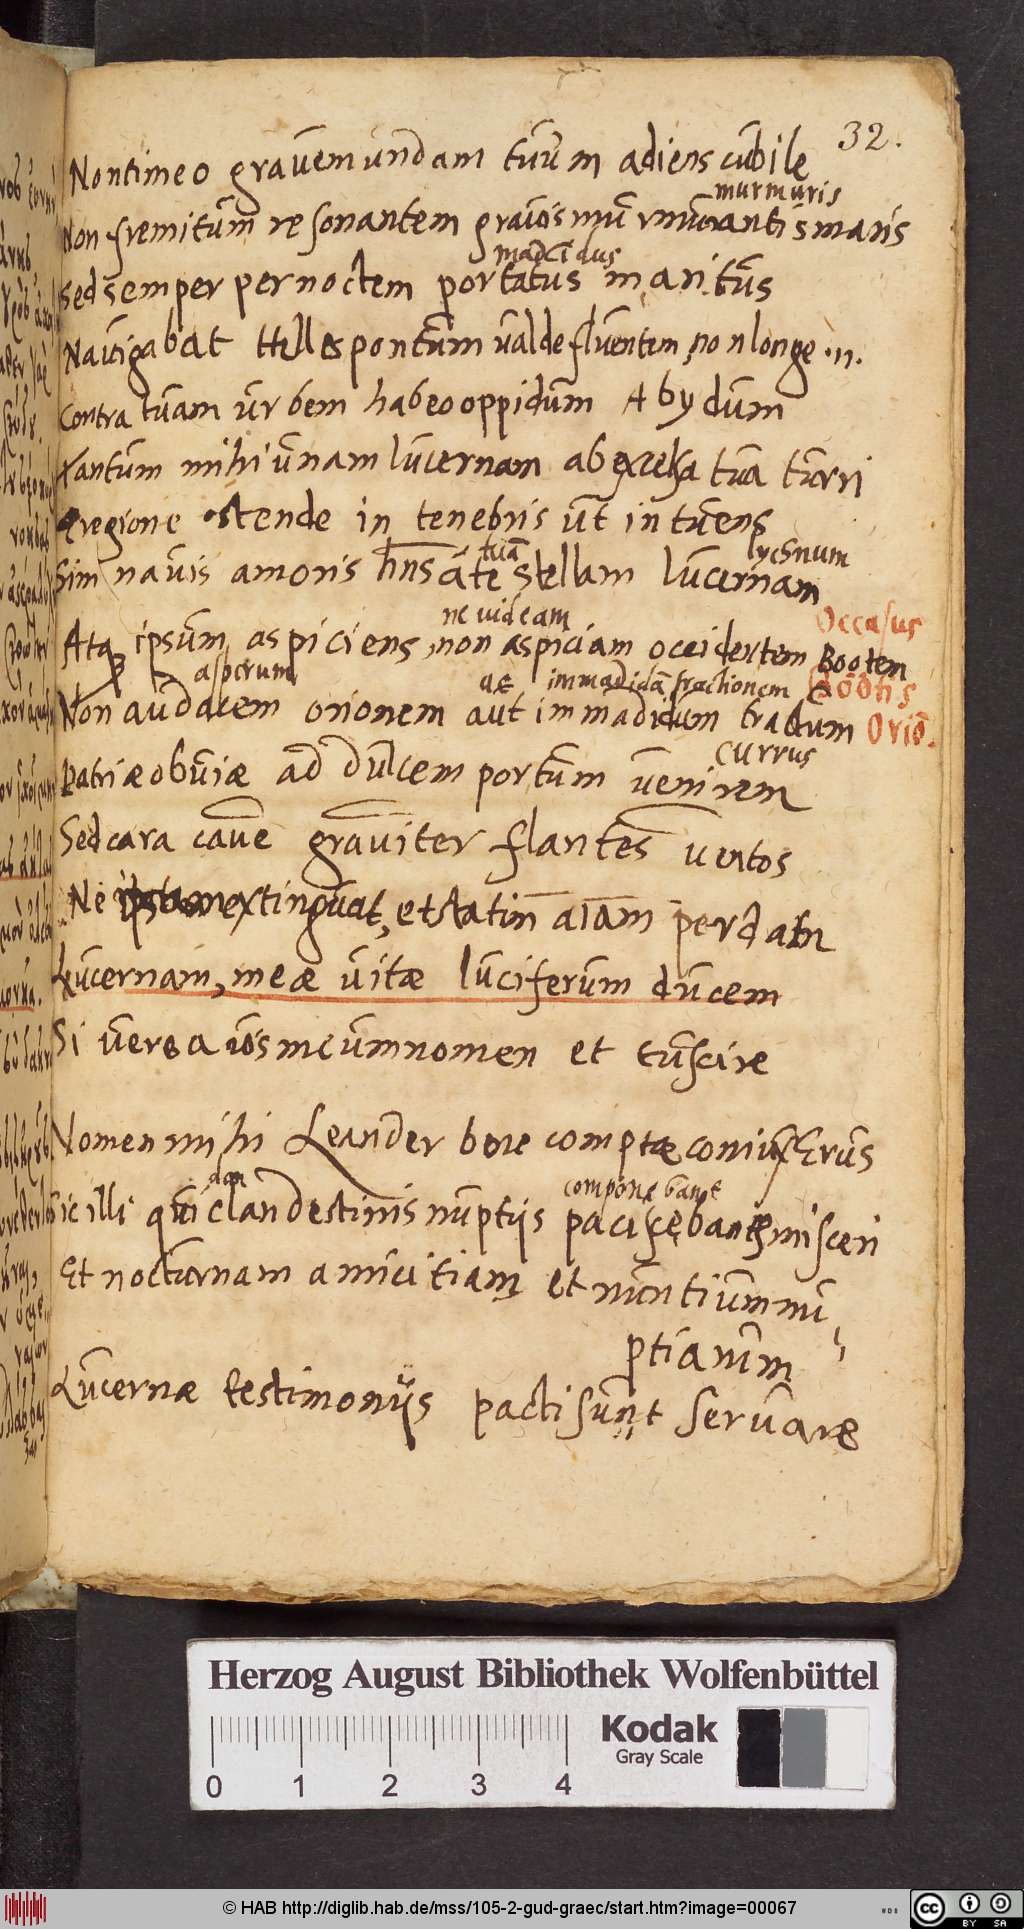 32.
Non timeo gravem undam tuum adiens cubile
murmuris
Non fremitum resonantem gravis murmurantis maris
madidus
Sed semper per noctem portatus maritus
Navigabat Hellespontum valde fluentem, non longe .n.
Contra tuam urbem habeo oppidum Abydum
Tantum mihi unam lucernam ab excelsa tua turri
E regione ostende in tenebris ut intuens
tuā lychnum
Sim navis amoris hns āte stellam lucernam
ne videam Occasus
Atq ipsum aspiciens, non aspiciam occidentem Bootem
asperum ae immadidā fractionem Bootis
Non audacem orionem aut immadidum tractum Oriō.
currus
Patriæ obviæ ad dulcem portum venirem
Sed cara cave graviter flantes ventos
Ne extinguat, et statim aīam perdam
Lucernam, meæ vitæ luciferum ducem
Si vero avis meum nomen et tu scire
Nomen mihi Leander bene comptæ coniux Erus
dan componebant
Sic illi qui clandestinis nuptijs paciscebant misceri
Et nocturnam amicitiam et nuntium nu
ptiarum
Lucernæ testimonijs pacti sunt servare
Herzog August Bibliothek Wolfenbüttel
Kodak
Gray Scale
0 1 2 3 4
© HAB http://diglib.hab.de/mss/105-2-gud-graec/start.htm?image=00067
cc BY SA